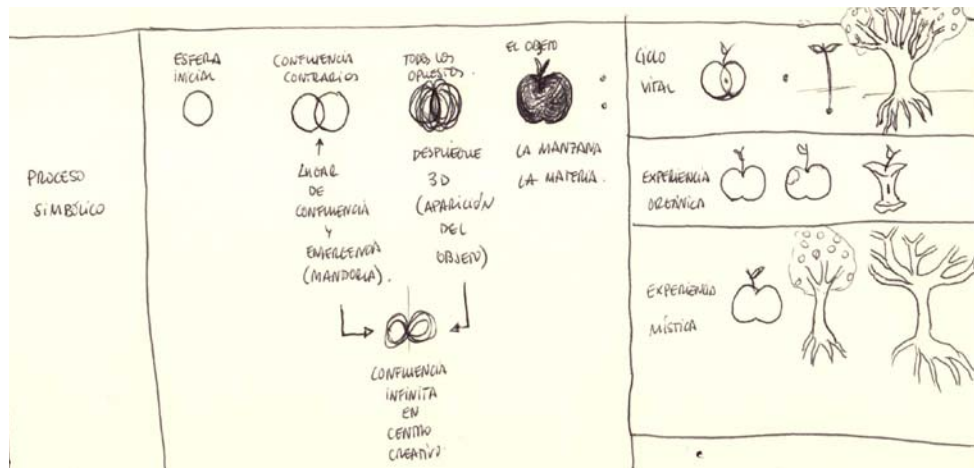 PROCESO
SIMBÓLICO
ESFERA
INICIAL
CONFLUENCIA
CONTRARIOS
↑
LUGAR
DE
CONFLUENCIA
Y
EMERGENCIA
(MANDORLA).
TODOS LOS
OPUESTOS.
DESPLIEGUE
3D
(APARICIÓN
DEL
OBJETO)
EL OBJETO
LA MANZANA
LA MATERIA.
CONFLUENCIA
INFINITA
EN
CENTRO
CREATIVO.
CICLO
VITAL
EXPERIENCIA
ORGÁNICA
EXPERIENCIA
MÍSTICA